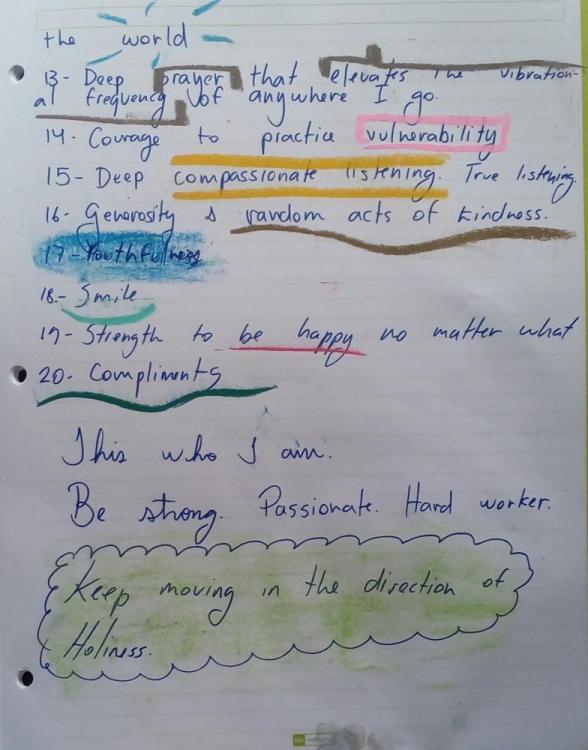 the world
13- Deep prayer that elevates the vibration-
al frequency of anywhere I go.
14- Courage to practice vulnerability
15- Deep compassionate listening. True listening.
16- Generosity & random acts of kindness.
17- Youthfulness
18.- Smile
19- Strength to be happy no matter what
20- Compliments
This who I am.
Be strong. Passionate. Hard worker.
Keep moving in the direction of
Holiness.